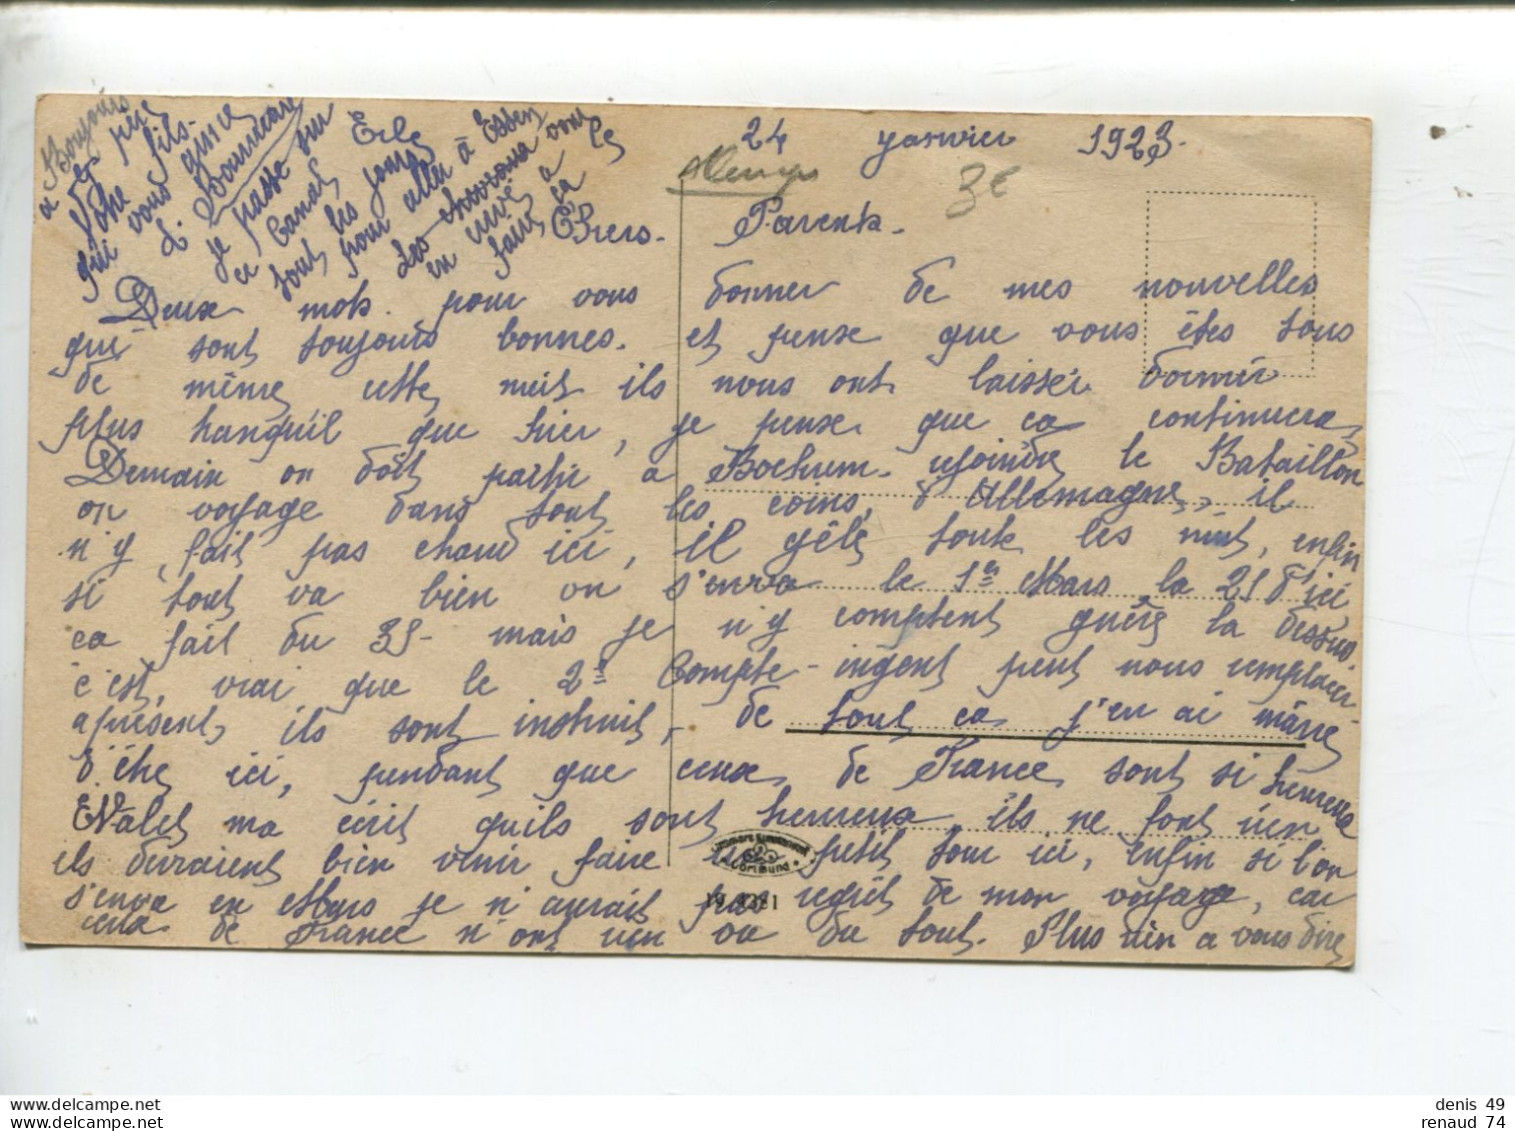 Erle le 24 janvier 1923.
Allemagne
3€
Chers. Parents.
Deux mots. pour vous donner de mes nouvelles
qui sont toujours bonnes. et pense que vous êtes tous
de même cette nuit ils nous ont laisser dormir
plus tranquil que hier, je pense que ca continuera
Demain on doit partir a Bochum. rejoindre le Bataillon
on voyage dans tout les coins, d'Allemagne, il
n'y fait pas chaud ici, il gêle toute les nuit, enfin
si tout va bien on s'enva le 1er Mars, la 21 d'ici
ca fait du 35- mais je n'y comptent guère la dessus.
c'est, vrai que le 2e Compte-ingent peut nous remplacer.
apresent, ils sont instruit, de tout ca j'en ai marre
d'être ici, pendant que ceux de France sont si heureux
Valet ma écrit quils sont heureux ils ne font rien
ils devraient bien venir faire un petit tour ici, enfin si l'on
s'enva en Mars je n'aurait pas regrêt de mon voyage, car
ceux de France n'ont rien vu du tout. Plus rien a vous dire
a Toujours
votre fils
qui vous
je passe sur
ce Canal
tout les jours
pour aller à Essen
Les
en
faire ça
Dortmund
19 1321
denis 49
renaud 74